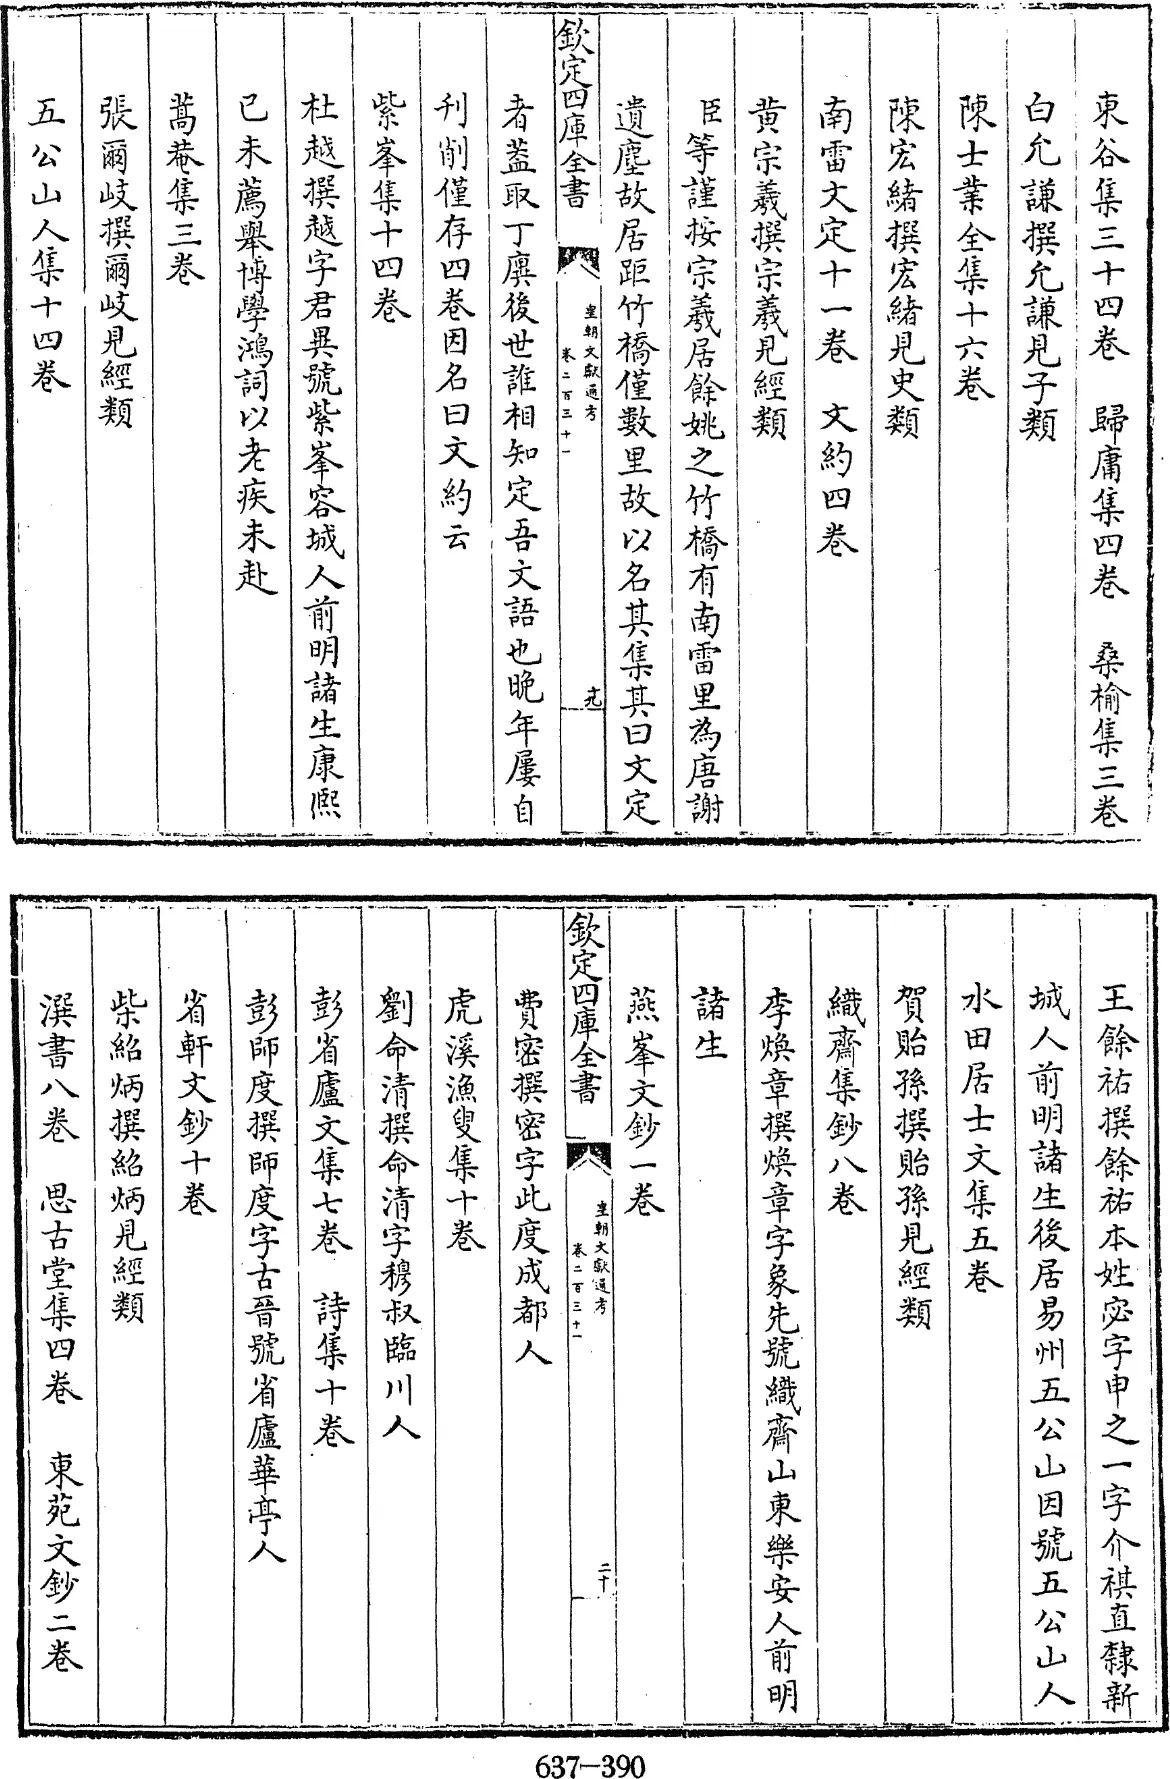 東谷集三十四卷　歸庸集四卷　桑榆集三卷
白允謙撰允謙見子類
陳士業全集十六卷
陳宏緒撰宏緒見史類
南雷文定十一卷　文約四卷
黄宗羲撰宗羲見經類
臣等謹按宗羲居餘姚之竹橋有南雷里為唐謝
遺塵故居距竹橋僅數里故以名其集其曰文定
欽定四庫全書
皇朝文獻通考
卷二百三十一
十九
者葢取丁廙後世誰相知定吾文語也晚年屢自
刋削僅存四卷因名曰文約云
紫峯集十四卷
杜越撰越字君異號紫峯容城人前明諸生康熙
己未薦舉博學鴻詞以老疾未赴
蒿菴集三卷
張爾岐撰爾岐見經類
五公山人集十四卷
王餘祐撰餘祐本姓宓字申之一字介祺直隸新
城人前明諸生後居易州五公山因號五公山人
水田居士文集五卷
賀貽孫撰貽孫見經類
織齋集鈔八卷
李煥章撰煥章字象先號織齋山東樂安人前明
諸生
燕峯文鈔一卷
欽定四庫全書
皇朝文獻通考
卷二百三十一
二十
費密撰密字此度成都人
虎溪漁叟集十卷
劉命清撰命清字穆叔臨川人
彭省廬文集七卷　詩集十卷
彭師度撰師度字古晉號省廬華亭人
省軒文鈔十卷
柴紹炳撰紹炳見經類
潠書八卷　思古堂集四卷　東苑文鈔二卷
637—390